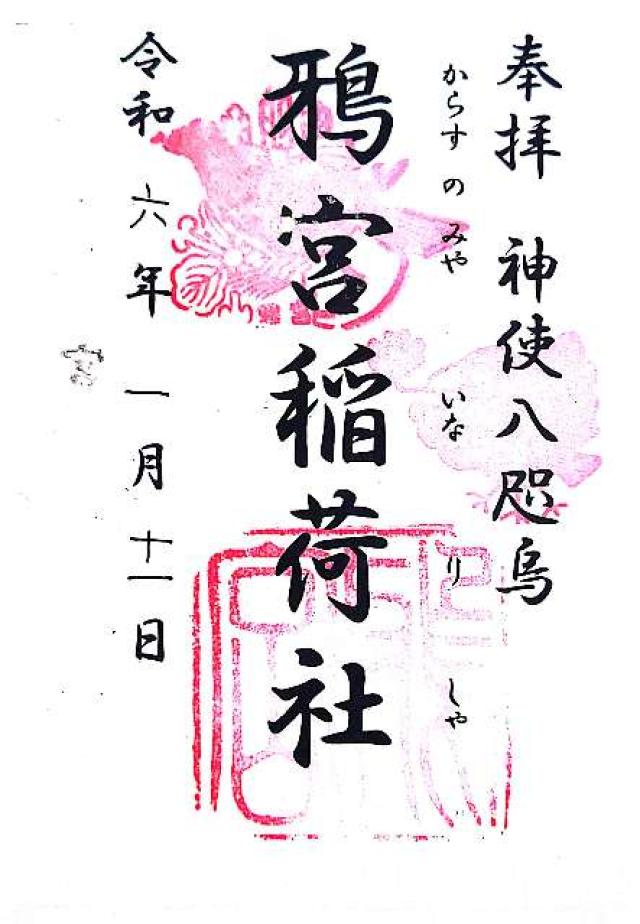 奉拝 神使八咫烏
からすのみやいなりしゃ
鴉宮稲荷社
令和六年一月十一日